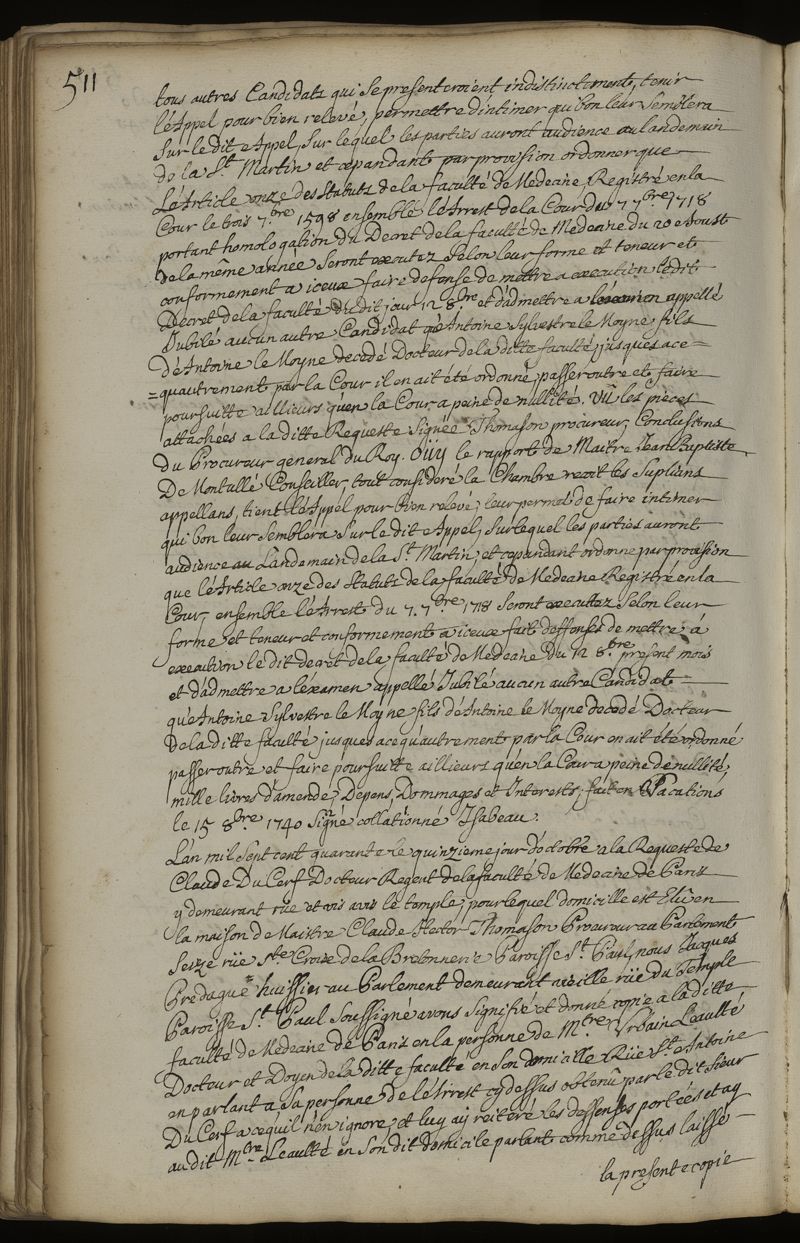 511
tous autres Candidats qui se presenteroient indistinctement, tenir
l'Appel pour bien relevé, permettre d'intimer qui bon leur semblera
sur le dit Appel, sur lequel les parties auront audience au landemain
de la St. Martin et cependant par provision ordonner que
L'Article onze des Statuts de la faculté de Medecine, Registré en la
Cour le trois 7.bre 1598 ensemble l'Arrest de la Cour du 7 7.bre 1718
portant homologation du Decret de la faculté de Medecine du 20 Aoust
de la même année seront executez selon leur forme et teneur et
conformement a iceux faire defense de mettre a execution ledit
Decret de la faculté dudit jour 12 8.bre et d'admettre a l'examen appellé
Jubilé aucun autre Candidat qu'Antoine Sylvestre le Moyne, fils
d'Antoine le Moyne decedé Docteur de la ditte faculté, jusques a ce=
=qu'autrement par la Cour il en ait été ordonné, passer outre et faire
poursuitte aillieurs qu'en la Cour a peine de nullité. Vû les pièces
attachées a la ditte Requeste Signée Thomason procureur, Conclusions
du Procureur general du Roy. Oüy le rapport de Maitre Jean Baptiste
De Montullé Conseiller, tout consideré la Chambre recoit les Suplians
appellans, tient l'Appel pour bien relevé, leur permet de faire intimer
qui bon leur semblera sur le dit Appel, sur lequel les parties auront
audience au Landemain de la St. Martin, et cependant ordonne par provision
que l'Article onze des Statuts de la faculté de Medecine Registré en la
Cour, ensemble l'Arrest du 7. 7.bre 1718 seront executtez selon leur
forme et teneur et conformement a iceux fait deffenses de mettre à
execution le dit decret de la faculté de Medecine du 12 8.bre present mois
et d'admettre a l'éxamen appellé Jubilé aucun autre Candidat
qu'Antoine Sylvestre le Moyne fils d'Antoine le Moyne decedé Docteur
de la ditte faculté jusques a ce qu'autrement par la Cour en ait été ordonné
passer outre et faire poursuitte aillieurs qu'en la Cour a peine de nullité,
mille livres d'amende, Depens, Dommages et Interests, fait en Vacations
le 15 8.bre 1740 Signé collationné Isabeau.
L'an mil sept cent quarante le quinzieme jour d'octobre a la Requeste de
Claude Du Cerf Docteur Regent de la faculté de Medecine de Paris
y demeurant rüe et vis avis le temple, pour lequel domicille est Elû en
la maison de Maistre Claude Hector Thomason Procureur au Parlement
Seize rüe Ste Croix de la Bretonnerie Paroisse St. Paul, nous Jacques
Predague huissier au Parlement demeurant vieille rüe du Temple
Paroisse St. Paul Soussigné avons signifié et donné copie a la ditte
faculté de Medecine de Paris en la personne de M.tre Urbain Leaulté
Docteur et Doyen de la ditte faculté en son domicille Rüe St. Antoine
en parlant a sa personne de l'Arrest cy dessus obtenû par le dit Sieur
Du Cerf a ce qu'il n'en ignore, et luy ay reiteré les deffenses portées et ay
au dit M.tre Leaulté en son dit domicile parlant comme dessus laissé
la presente copie